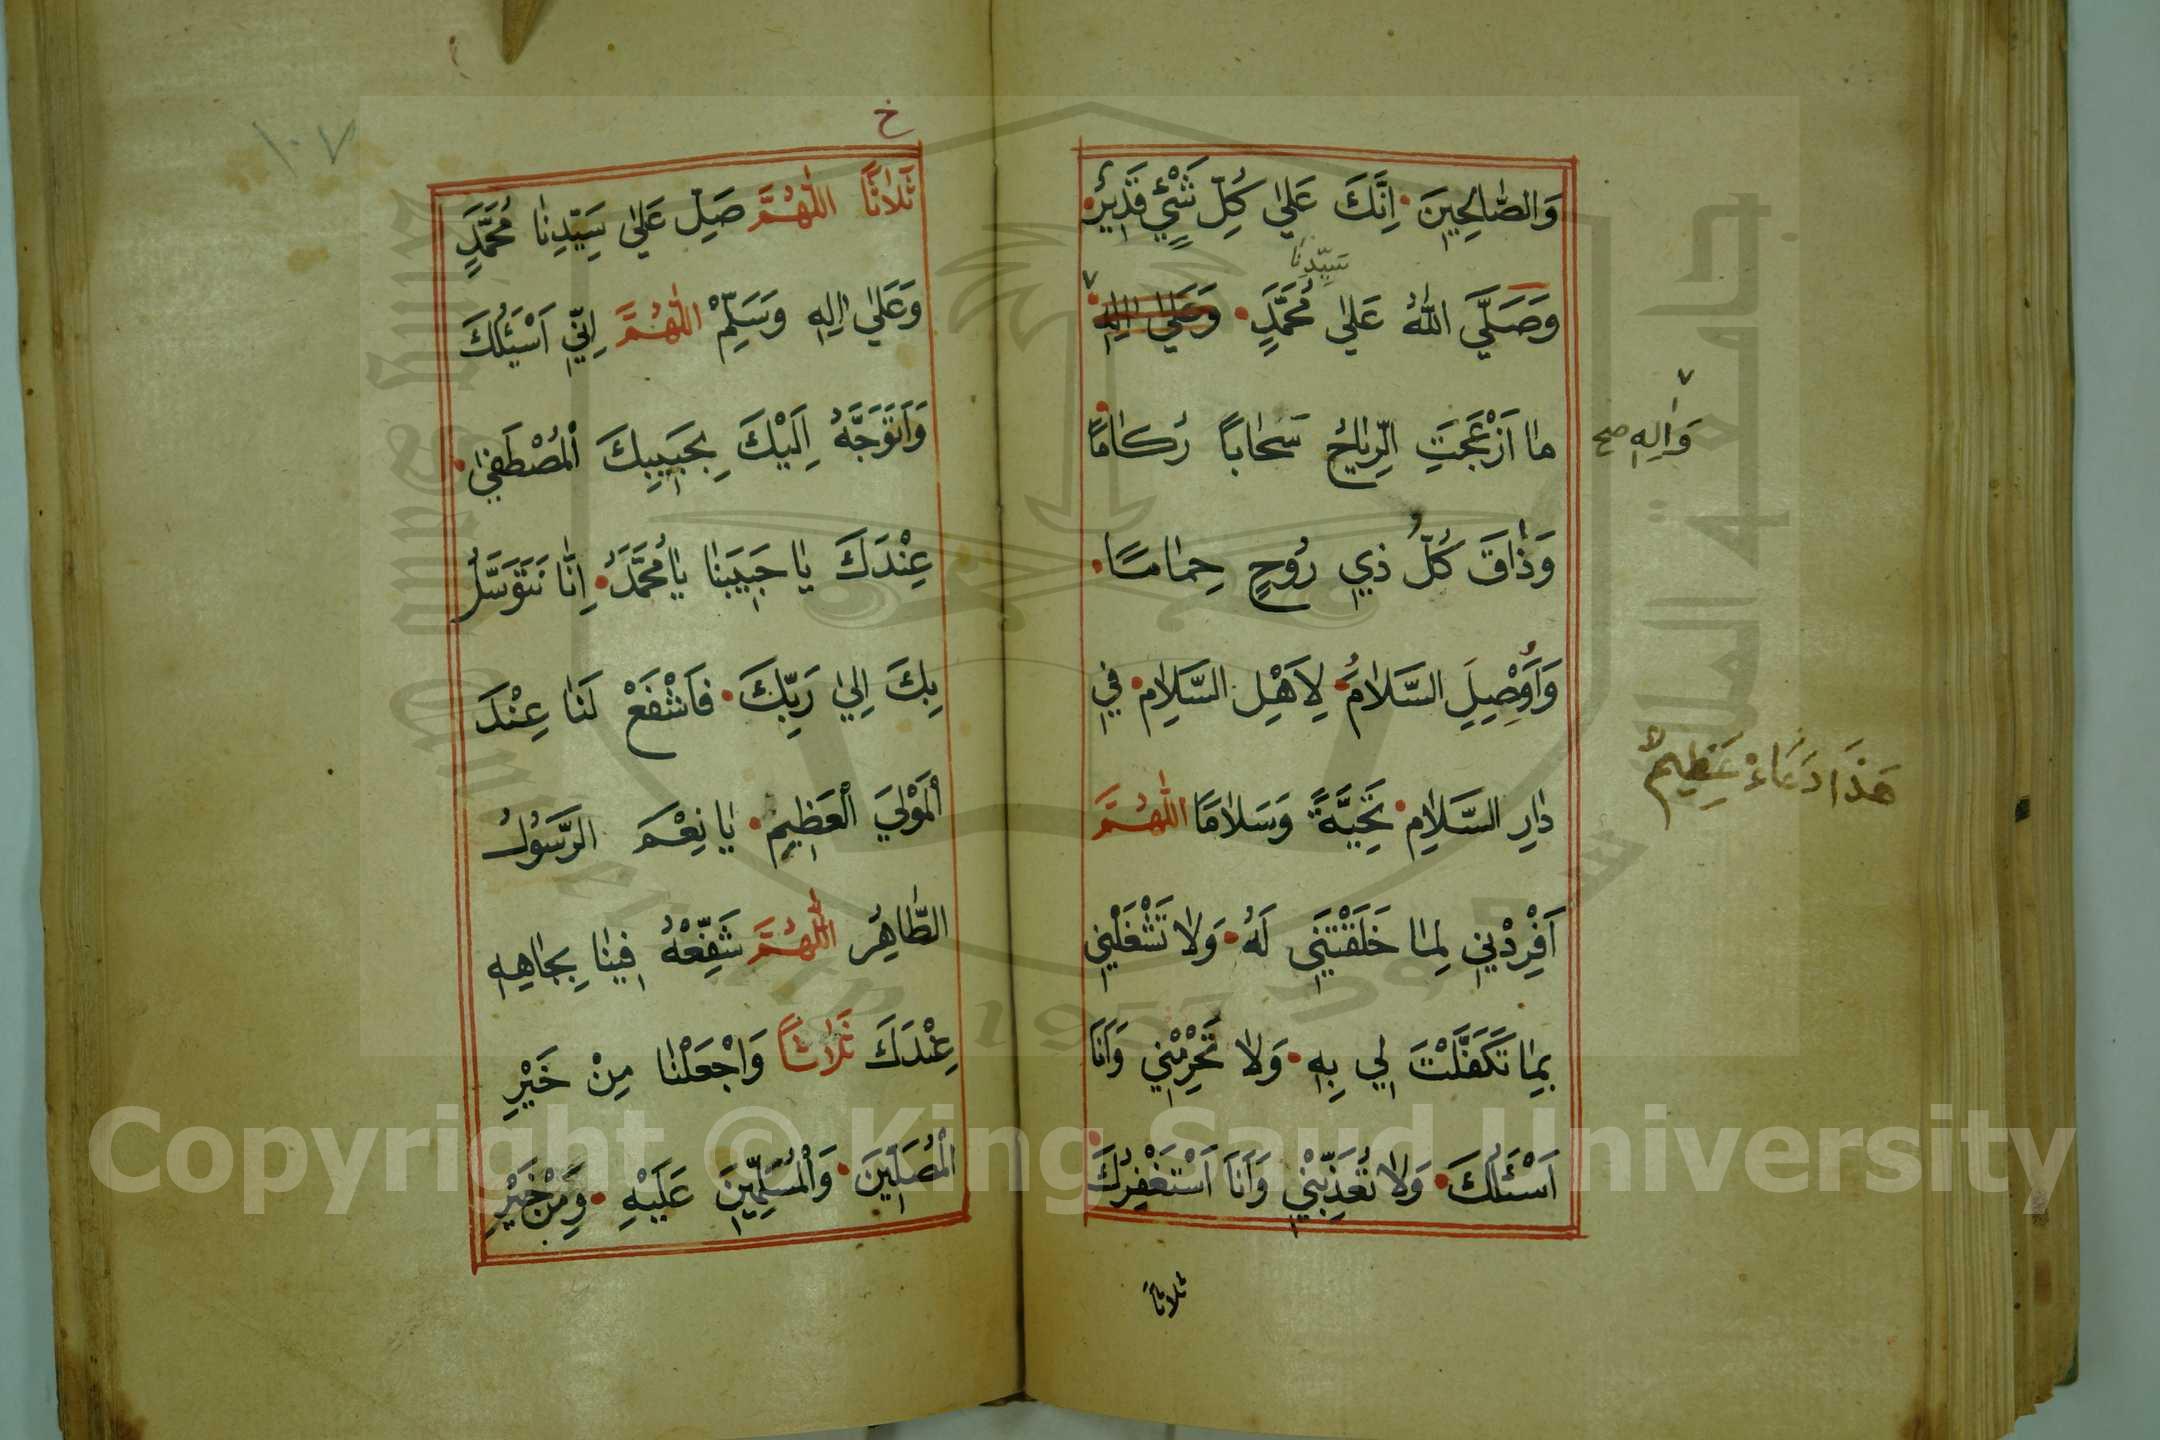 وَالصّٰالِحِينَ اِنَّكَ عَلىٰ كُلِّ شَيْءٍ قَدِيرٌ
سَيِّدِنَا
وَصَلَّي اللّٰهُ عَلىٰ مُحَمَّدٍ وَعَلىٰ اٰلِهِ
مٰا اَزْعَجَتِ الرِّيٰاحُ سَحٰاباً رُكٰامًا
وَاٰلِهِ صح
وَذٰاقَ كُلُّ ذِي رُوْحٍ حِمٰامًا
وَاَوْصِلِ السَّلَامَ لِاَهْلِ السَّلَامِ فِي
دٰارِ السَّلَامِ تَحِيَّةً وَسَلَامًا اَللّٰهُمَّ
هَذَا دُعَاءٌ عَظِيمٌ
اَفْرِدْنِي لِمٰا خَلَقْتَنِي لَهُ وَلاٰ تَشْغَلْنِي
بِمٰا تَكَفَّلْتَ لِي بِهِ وَلاٰ تَحْرِمْنِي وَاَنَا
اَسْئَلُكَ وَلاٰ تُعَذِّبْنِي وَاَنَا اَسْتَغْفِرُكَ
ثلاثاً
١٠٧
خ
ثَلَاثًا اَللّٰهُمَّ صَلِّ عَلىٰ سَيِّدِنٰا مُحَمَّدٍ
وَعَلىٰ اٰلِهِ وَسَلِّمْ اَللّٰهُمَّ اِنِّي اَسْئَلُكَ
وَاَتَوَجَّهُ اِلَيْكَ بِحَبِيبِكَ الْمُصْطَفىٰ
عِنْدَكَ يٰا حَبِيبَنٰا يٰا مُحَمَّدُ اِنّٰا نَتَوَسَّلُ
بِكَ اِلىٰ رَبِّكَ فَاشْفَعْ لَنٰا عِنْدَ
الْمَوْلىَ الْعَظِيمِ يٰا نِعْمَ الرَّسُولُ
الطّٰاهِرُ اَللّٰهُمَّ شَفِّعْهُ فِينٰا بِجٰاهِهِ
عِنْدَكَ ثَلَاثًا وَاجْعَلْنٰا مِنْ خَيْرِ
الْمُصَلِّينَ وَالْمُسَلِّمِينَ عَلَيْهِ وَمِنْ خَيْرِ
Copyright © King Saud University
جامعة الملك سعود
King Saud University
1957